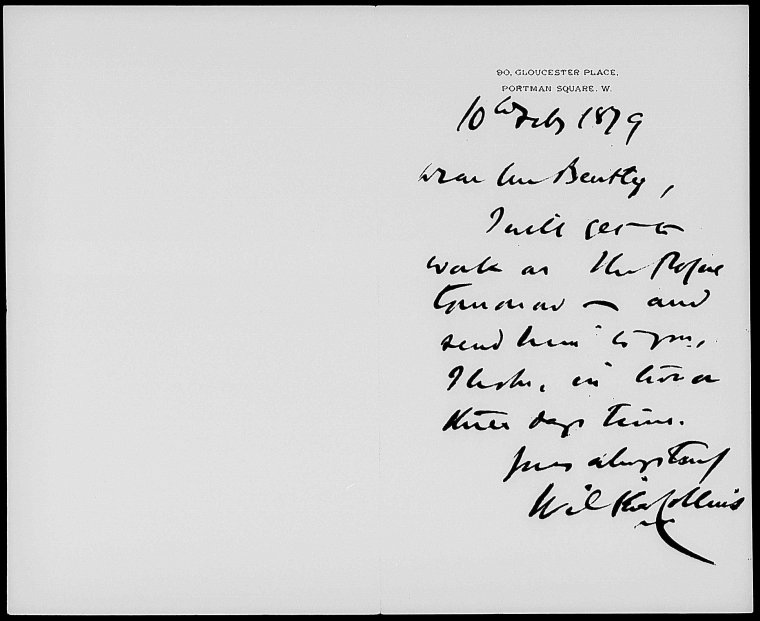 90, GLOUCESTER PLACE,
PORTMAN SQUARE. W.
10th Feby 1879
Dear Mr Bentley,
I will get to
work on the Rogue
tomorrow — and
send him to you,
I hope, in two or
three days time.
Yours always truly
Wilkie Collins